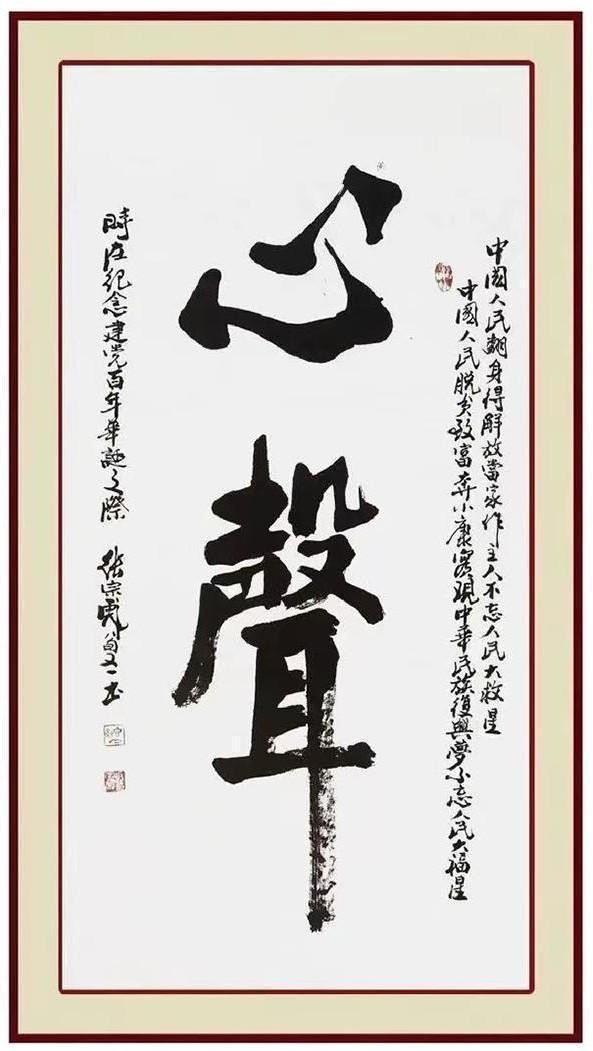 中國人民翻身得解放當家作主人不忘人民大救星
中國人民脱贫致富奔小康實現中華民族復興夢不忘人民大福星
心聲
時在紀念建党百年華誕之際 张宗 书